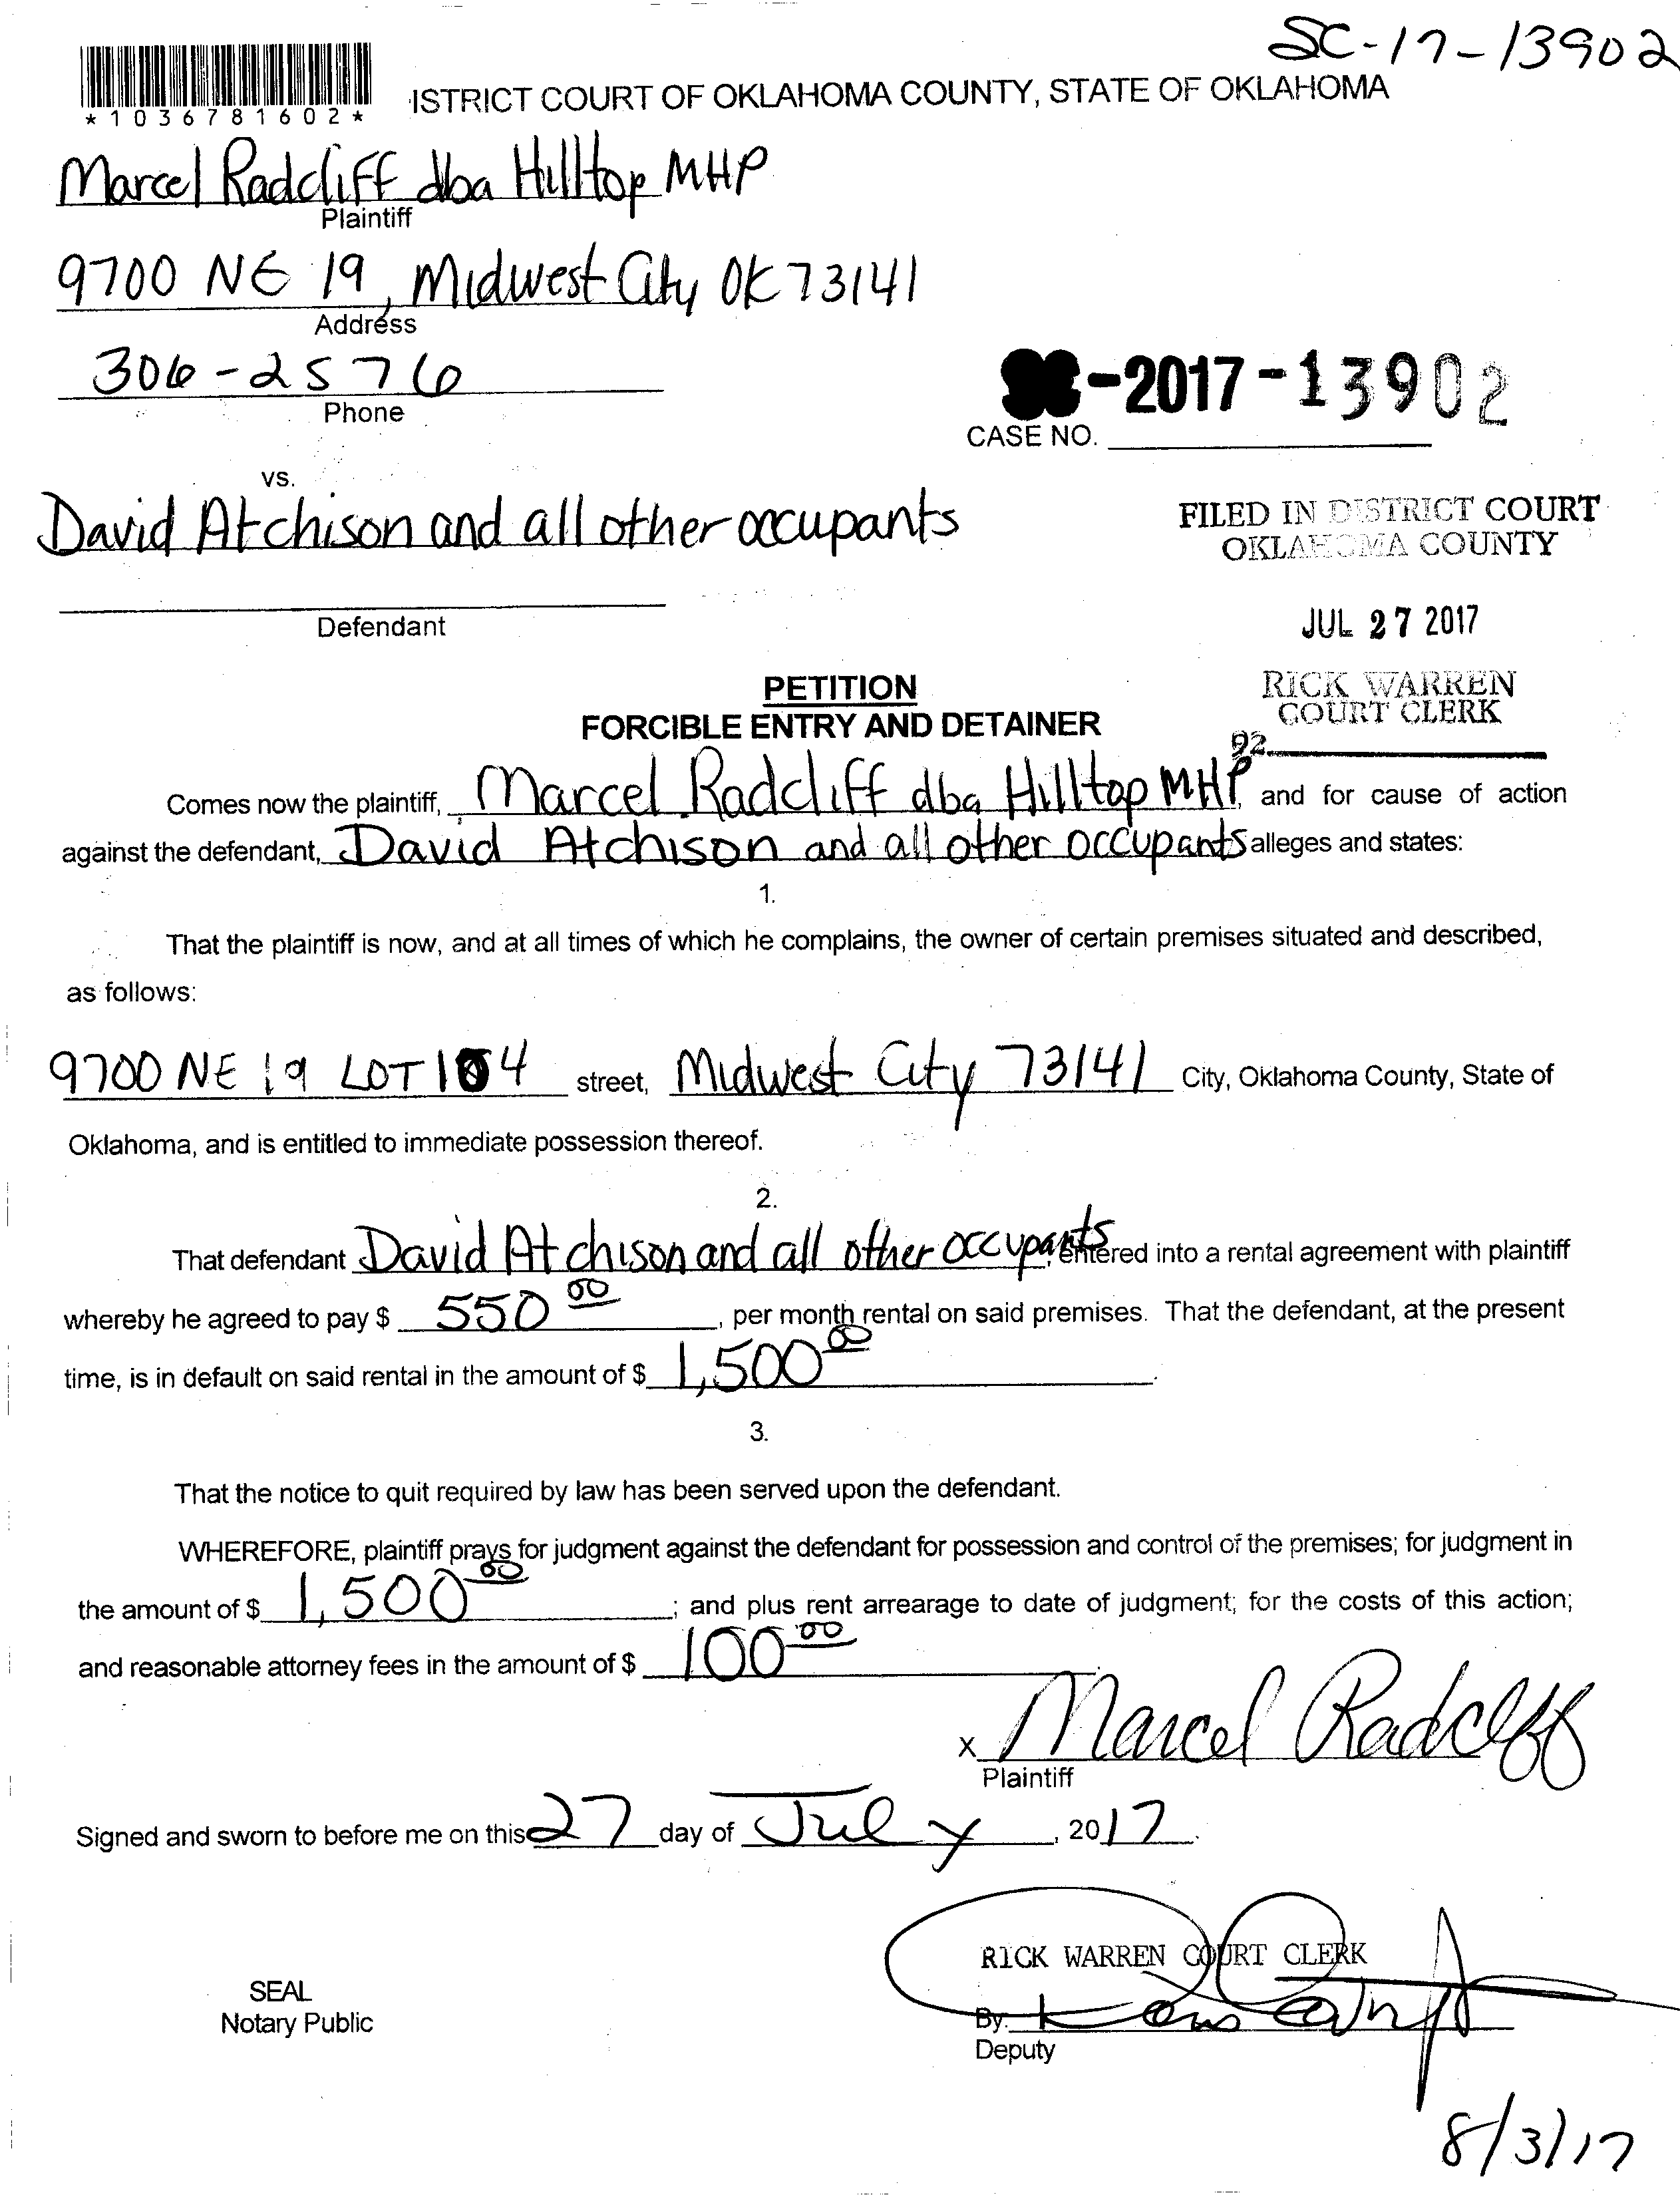 SC-17-13902
*1036781602*
ISTRICT COURT OF OKLAHOMA COUNTY, STATE OF OKLAHOMA
Marcel Radcliff dba Hilltop MHP
Plaintiff
9700 NE 19, Midwest City OK 73141
Address
306-2576
Phone
-2017-13902
CASE NO.
vs.
David Atchison and all other occupants
Defendant
FILED IN DISTRICT COURT
OKLAHOMA COUNTY
JUL 27 2017
RICK WARREN
COURT CLERK
92
PETITION
FORCIBLE ENTRY AND DETAINER
Comes now the plaintiff, Marcel Radcliff dba Hilltop MHP, and for cause of action
against the defendant, David Atchison and all other occupants alleges and states:
1.
That the plaintiff is now, and at all times of which he complains, the owner of certain premises situated and described,
as follows:
9700 NE 19 LOT 104 street, Midwest City 73141 City, Oklahoma County, State of
Oklahoma, and is entitled to immediate possession thereof.
2.
That defendant David Atchison and all other occupants, entered into a rental agreement with plaintiff
whereby he agreed to pay $ 550 00, per month rental on said premises. That the defendant, at the present
time, is in default on said rental in the amount of $ 1,500 00.
3.
That the notice to quit required by law has been served upon the defendant.
WHEREFORE, plaintiff prays for judgment against the defendant for possession and control of the premises; for judgment in
the amount of $ 1,500 00; and plus rent arrearage to date of judgment; for the costs of this action;
and reasonable attorney fees in the amount of $ 100 00.
x Marcel Radcliff
Plaintiff
Signed and sworn to before me on this 27 day of July, 2017.
RICK WARREN COURT CLERK
SEAL
Notary Public
By:
Deputy
8/3/17